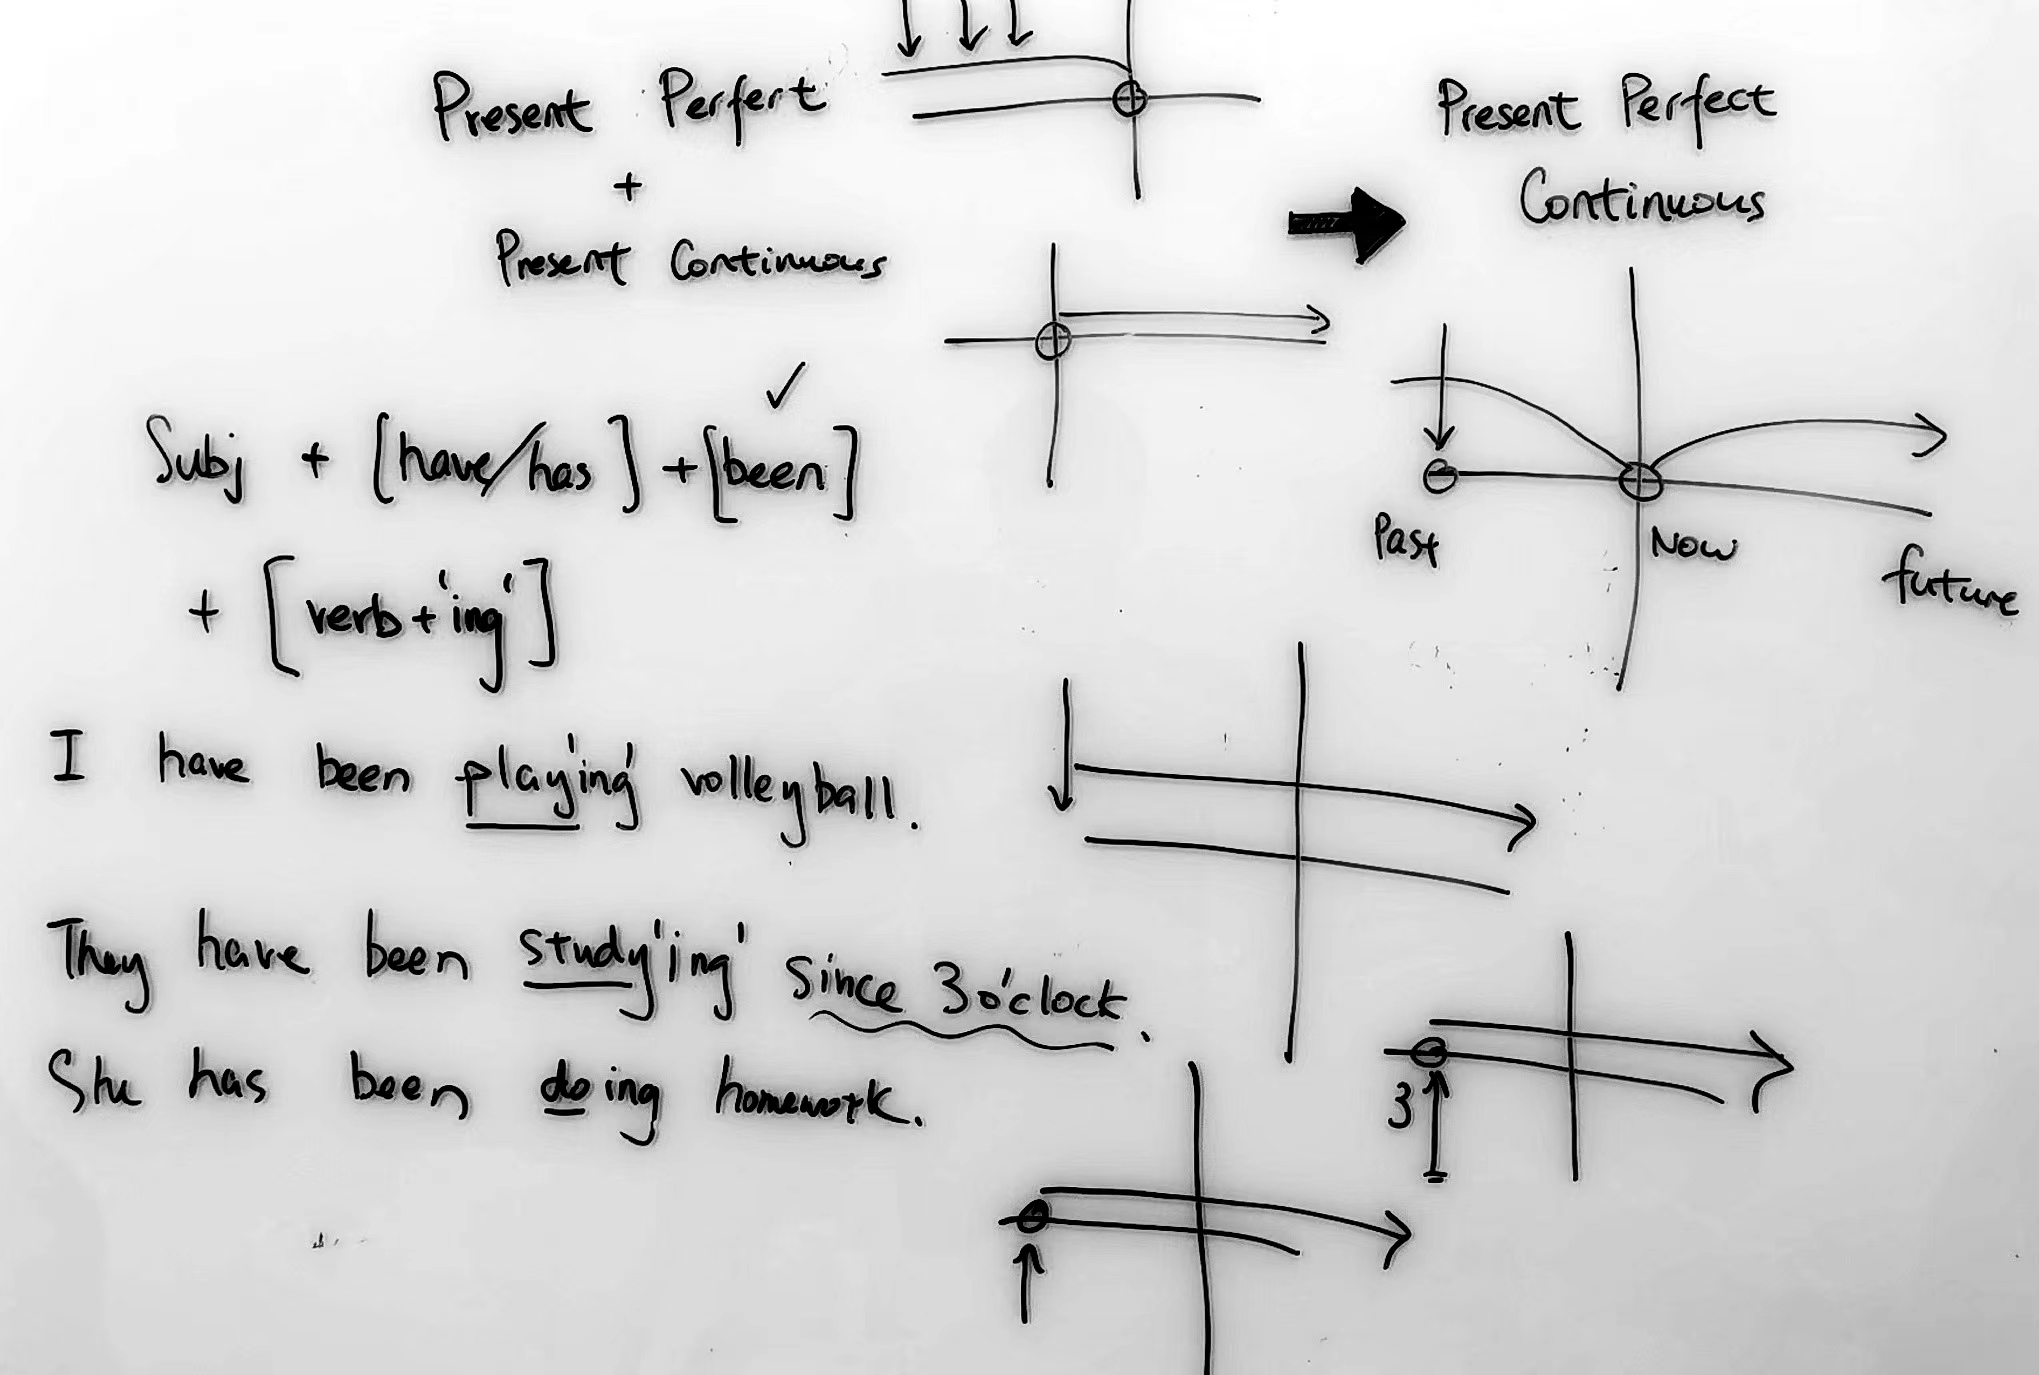 Present Perfert
+
Present Continuous
Present Perfect
Continuous
Subj + [have/has] + [been]
+ [verb + 'ing']
Past
Now
future
I have been play'ing' volleyball.
They have been study'ing' since 3 o'clock.
She has been doing homework.
3